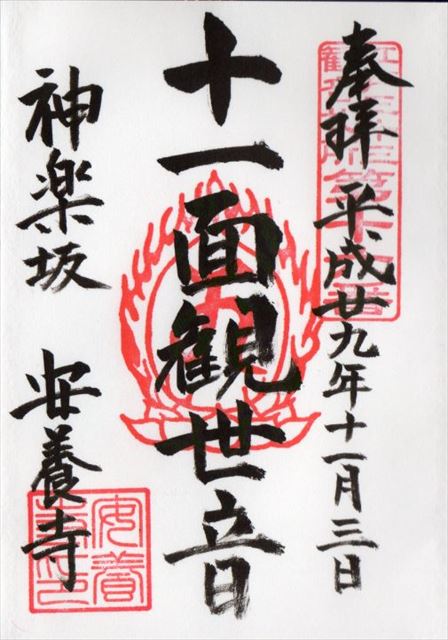 奉拝 平成廿九年十一月三日
十一面観世音
神楽坂 安養寺